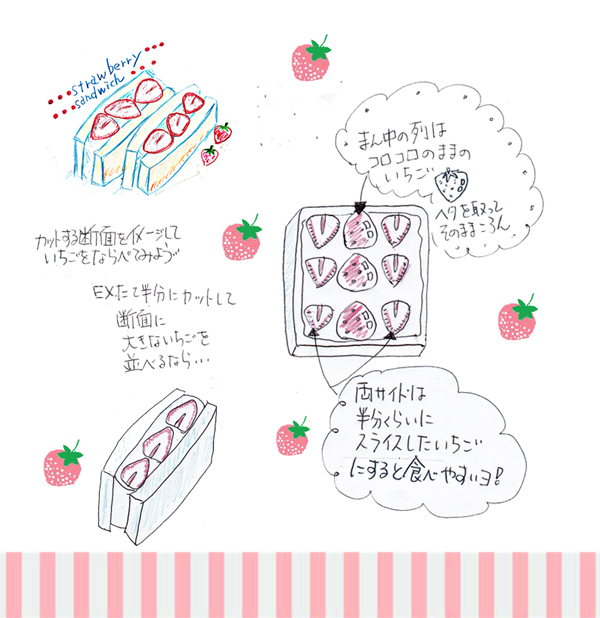 strawberry
sandwich
まん中の列は
コロコロのままの
いちご
ヘタを取って
そのままころん
カットする断面をイメージして
いちごをならべてみようず
EX.たて半分にカットして
断面に
大きないちごを
並べるなら・・・
両サイドは
半分くらいに
スライスしたいちご
にすると食べやすいヨ!